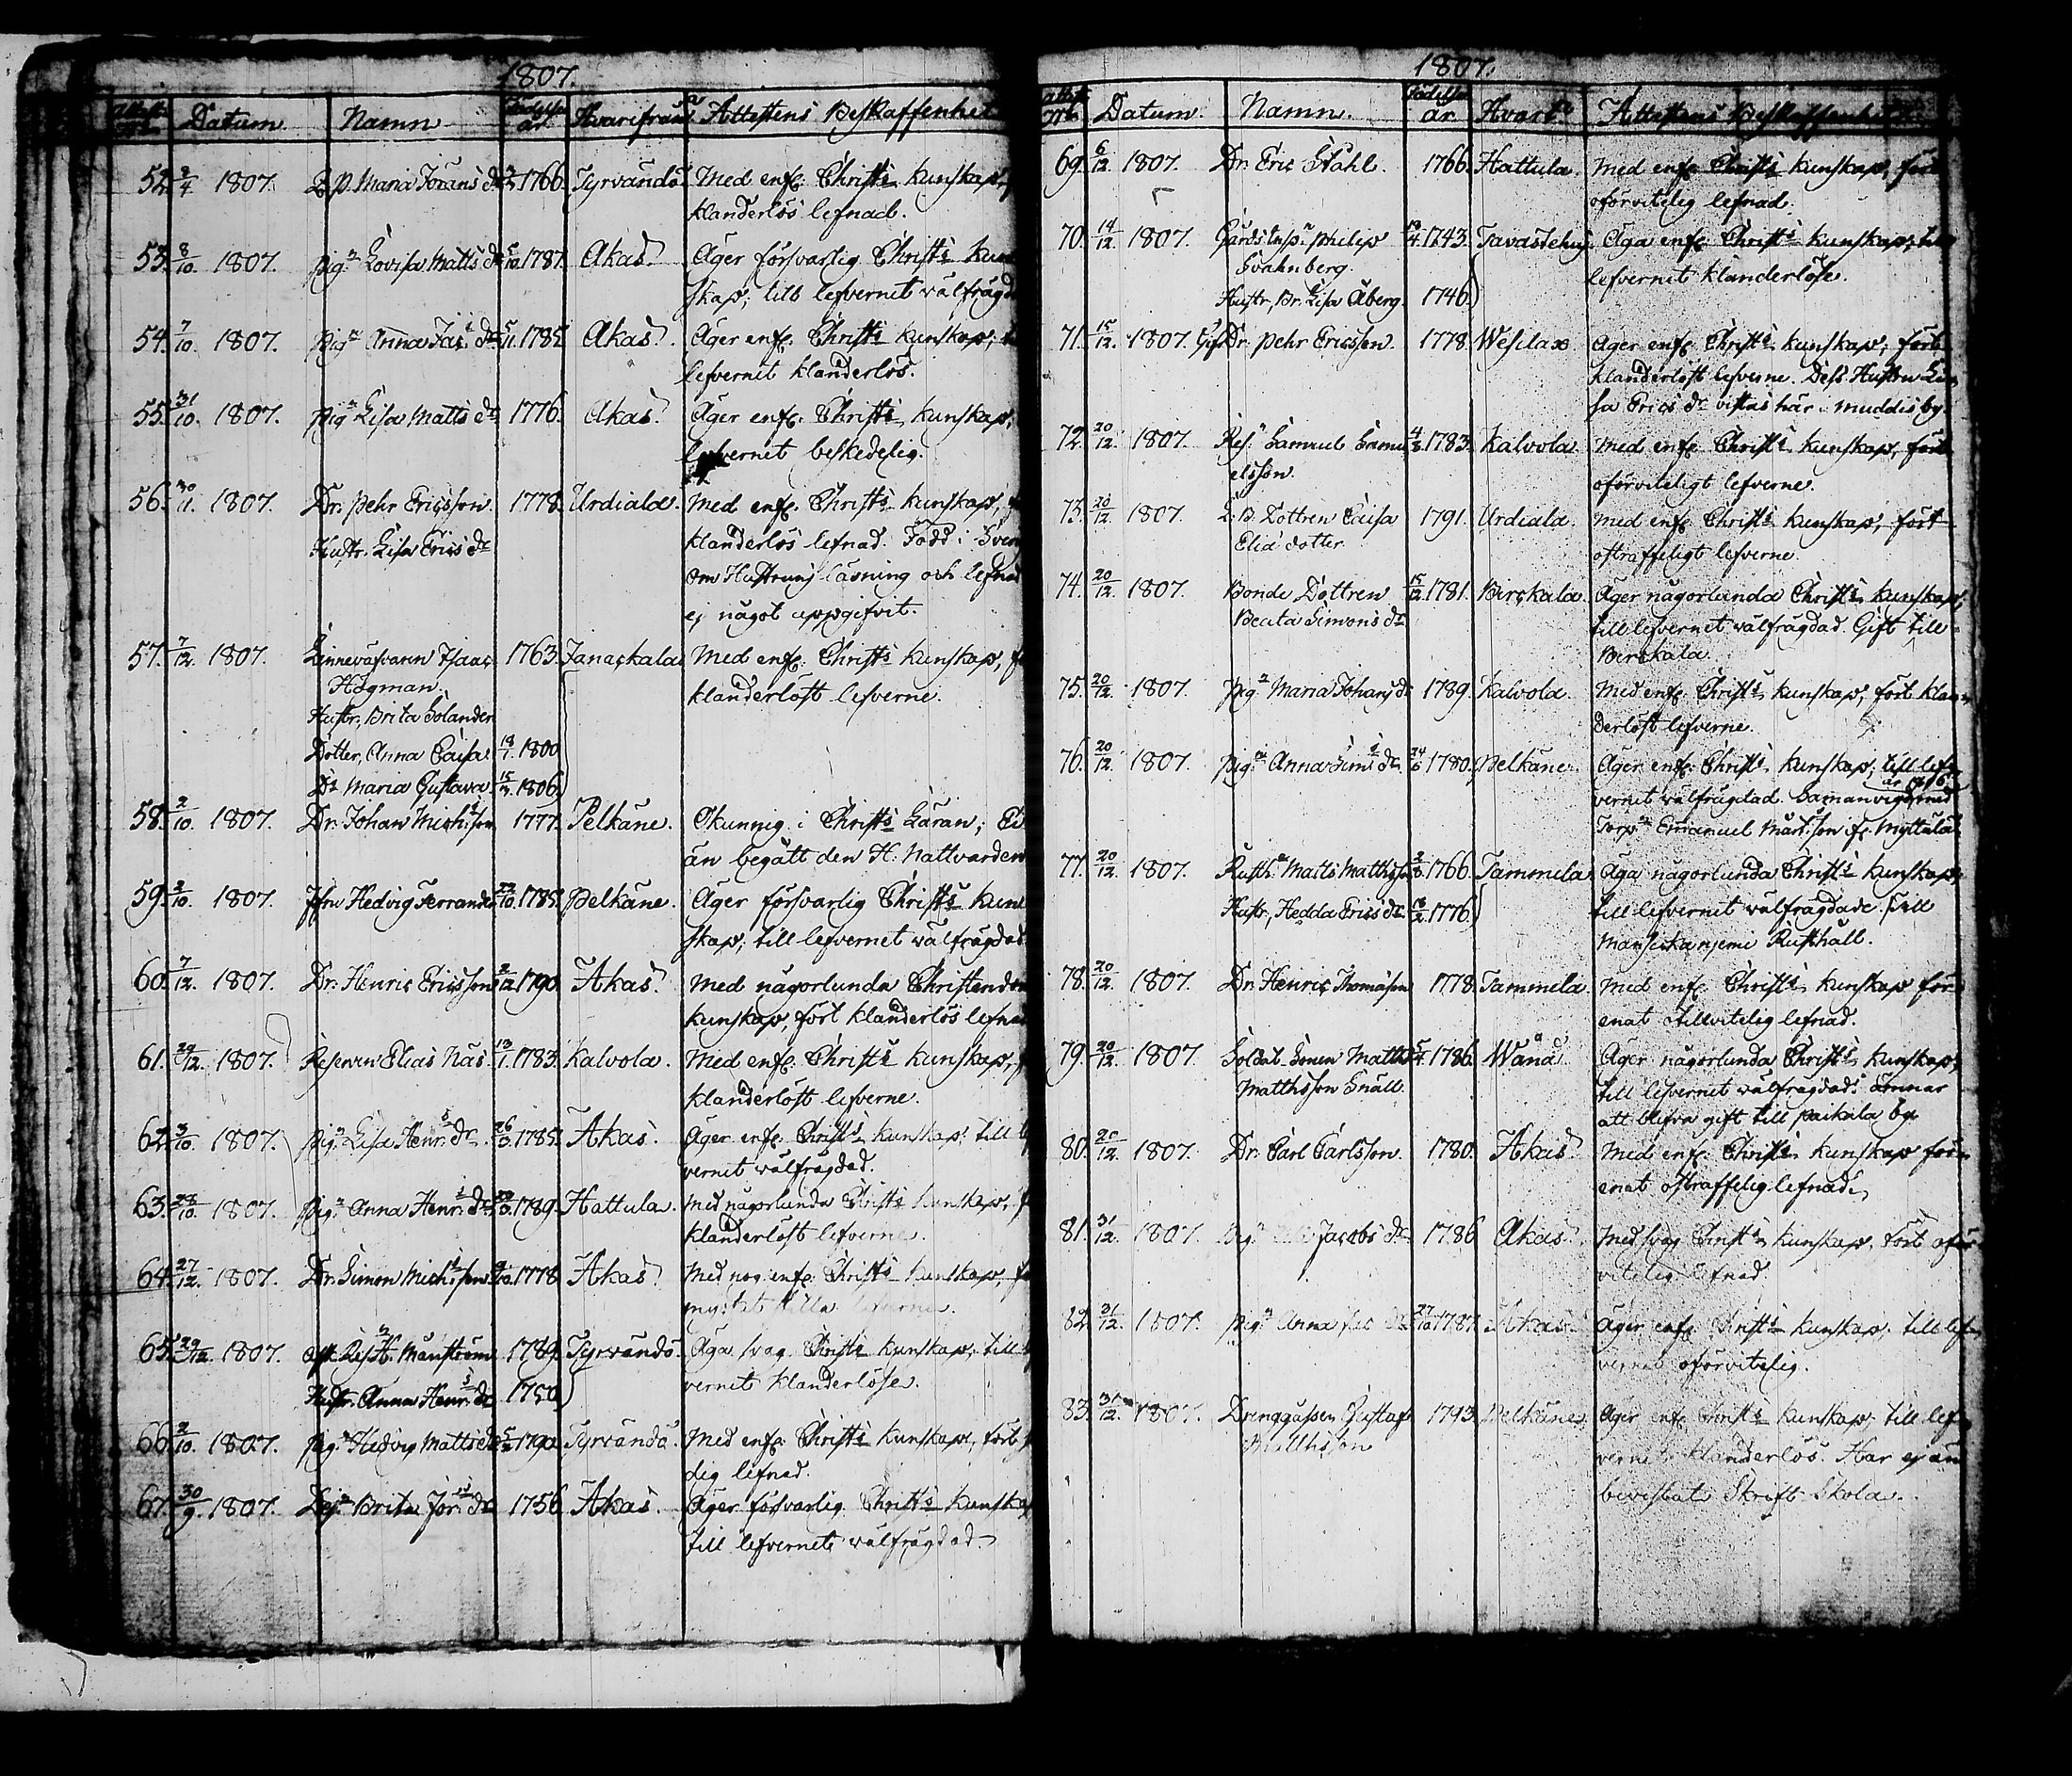 1807.
Attest N:o Datum. Namn Födelse år. Hvarifrån Attestens Beskaffenhet
52. 2/4 1807. Maria Jörans dr 1766. Tyrvändö. Med enf. Christs kunskap,
klanderlös lefnad.
53. 8/10. 1807. Pig. Lovisa Matts dr 5/10. 1787. Akas. Äger försvarlig Christs kun
skap; till lefvernet välfrägd
54. 7/10. 1807. Pig. Anna dr 5/11. 1785. Akas. Äger enf. Christs kunskap;
lefvernet klanderlös.
55. 31/10. 1807. Pig. Lisa Matts dr 1776. Akas. Äger enf. Christs kunskap;
lefvernet beskedelig.
56. 30/11. 1807. Dr. Pehr Ericsson. 1778. Urdiala. Med enf. Christs kunskap,
Hustr. Lisa Erics dr klanderlös lefnad. Född i Sver
Om Hustruns läsning och lefnad
ej något uppgifvit.
57. 7/12. 1807. Linneväfvaren Isaac 1763. Janackala Med enf. Christs kunskap,
Högman. klanderlöst lefverne.
Hustr, Brita Solander
Dotter, Anna Caisa. 18/1. 1800
Dr Maria Gustava. 1806.
58. 2/10. 1807. Dr. Johan Mich:sson 1777. Pelkäne. Okunnig i Christs Läran; Ei
än begått den H. Nattvarden
59. 2/10. 1807. Jfru Hedvig Ferrander 22/10. 1785. Pelkäne. Äger försvarlig Christs kun
skap; till lefvernet välfrägdad
60. 7/12. 1807. Dr. Henric Ericsson 2/12. 1790. Akas. Med någorlunda Christendom
kunskap, fört klanderlös lefnad
61. 29/12. 1807. Reserven Elias Näs. 13/1. 1783. Kalvola. Med enf. Christs kunskap,
klanderlöst lefverne.
62. 3/10. 1807. Pig. Lisa Henr:s dr 1785. Akas. Äger enf. Christs kunskap; till lef
vernet välfrägdad.
63. 28/10. 1807. Pig. Anna Henr:s dr 1789. Hattula. Med någorlunda Christs kunskap,
klanderlöst lefverne.
64. 27/12. 1807. Dr. Simon Mich:sson 1778 Akas. Med nog enf. Christs kunskap,
mycket illa lefverne.
65. 29/12. 1807. Manström 1789. Tyrvändö. Äga svag Christs kunskap; till
Hustr. Anna Henr:s dr 1750 vernet klanderlöse.
66. 2/10. 1807. Pig. Hedvig Matts dr 1790. Tyrvändö. Med enf. Christs kunskap, fört
dig lefnad.
67. 30/9. 1807. Brita Jör:s dr 1756 Akas. Äger försvarlig Christs kunskap
till lefvernets välfrägdad.
1807.
Attest N:o Datum. Namn. Födelse år. Hvart Attestens Beskaffenhet
69. 6/12 1807. Dr. Eric Ståhl. 1766. Hattula. Med enf. Christs kunskap, fört
oförvitelig lefnad.
70. 14/12. 1807. Gårds Insp. Philip 1743. Tavastehus Äga enf. Christs kunskap; till
Svahnberg. lefvernet klanderlöse.
Hustr, Br. Lisa Åberg. 1746.
71. 15/12. 1807. Gift Dr. Pehr Ericsson. 1778. Wesilax Äger enf. Christs kunskap; fört
klanderlöst lefverne. Dess Hustru Li
sa Erics dr vistas här i Muddis by.
72. 20/12. 1807. Res. Samuel Samu 1783. Kalvola. Med enf. Christs kunskap, fört
elsson. oförviteligt lefverne.
73. 20/12. 1807. Dottren Caisa 1791. Urdiala. Med enf. Christs kunskap, fört
Elia dotter. ostraffeligt lefverne.
74. 20/12. 1807. Bonde Dottren 15/12. 1781. Birckala. Äger någorlunda Christs kunskap;
Beata Simons dr till lefvernet välfrägdad. Gift till
Birckala.
75. 20/12. 1807. Pig. Maria Johans dr 1789. Kalvola. Med enf. Christs kunskap, fört klan
derlöst lefverne.
76. 20/12. 1807. Pig. Anna Sim:s dr 1780. Pelkäne. Äger enf. Christs kunskap; till lef
vernet välfrägdad. Samanvigd med
Torp. Emanuel Mårt:sson fr. Myttälä
77. 20/12. 1807. Rusth. Matts Mattsson 1766. Tammela Äga någorlunda Christs kunskap;
Hustr, Hedda Erics dr 1776. till lefvernet välfrägdade. Till
Rusthåll.
78. 20/12. 1807. Dr. Henric Thomasson 1778. Tammela. Med enf. Christs kunskap för
enat otillvitelig lefnad.
79. 20/12. 1807. Soldat Sonen Matths 1786. Wånå Äger någorlunda Christs kunskap;
Matthsson Snäll. till lefvernet välfrägdad. ämnar
att blifva gift till Paikala by
80. 20/12. 1807. Dr. Carl Carlsson. 1780. Akas. Med enf. Christs kunskap för
enat ostraffelig lefnad.
81. 31/12. 1807. Pig. Jacobs dr 1786 Akas. Med svag Christs kunskap, fört oför
vitelig lefnad.
82. 31/12. 1807. Pig. Anna dr 27/10 1787. Akas. Äger enf. Christs kunskap; till lef
vernet oförvitelig.
83. 31/12. 1807. Drenggåssen Gustaf 1793. Pelkäne. Äger enf. Christs kunskap; till lef
Matthsson vernet klanderlös. Har ej än
bevistat Skrift Skola.